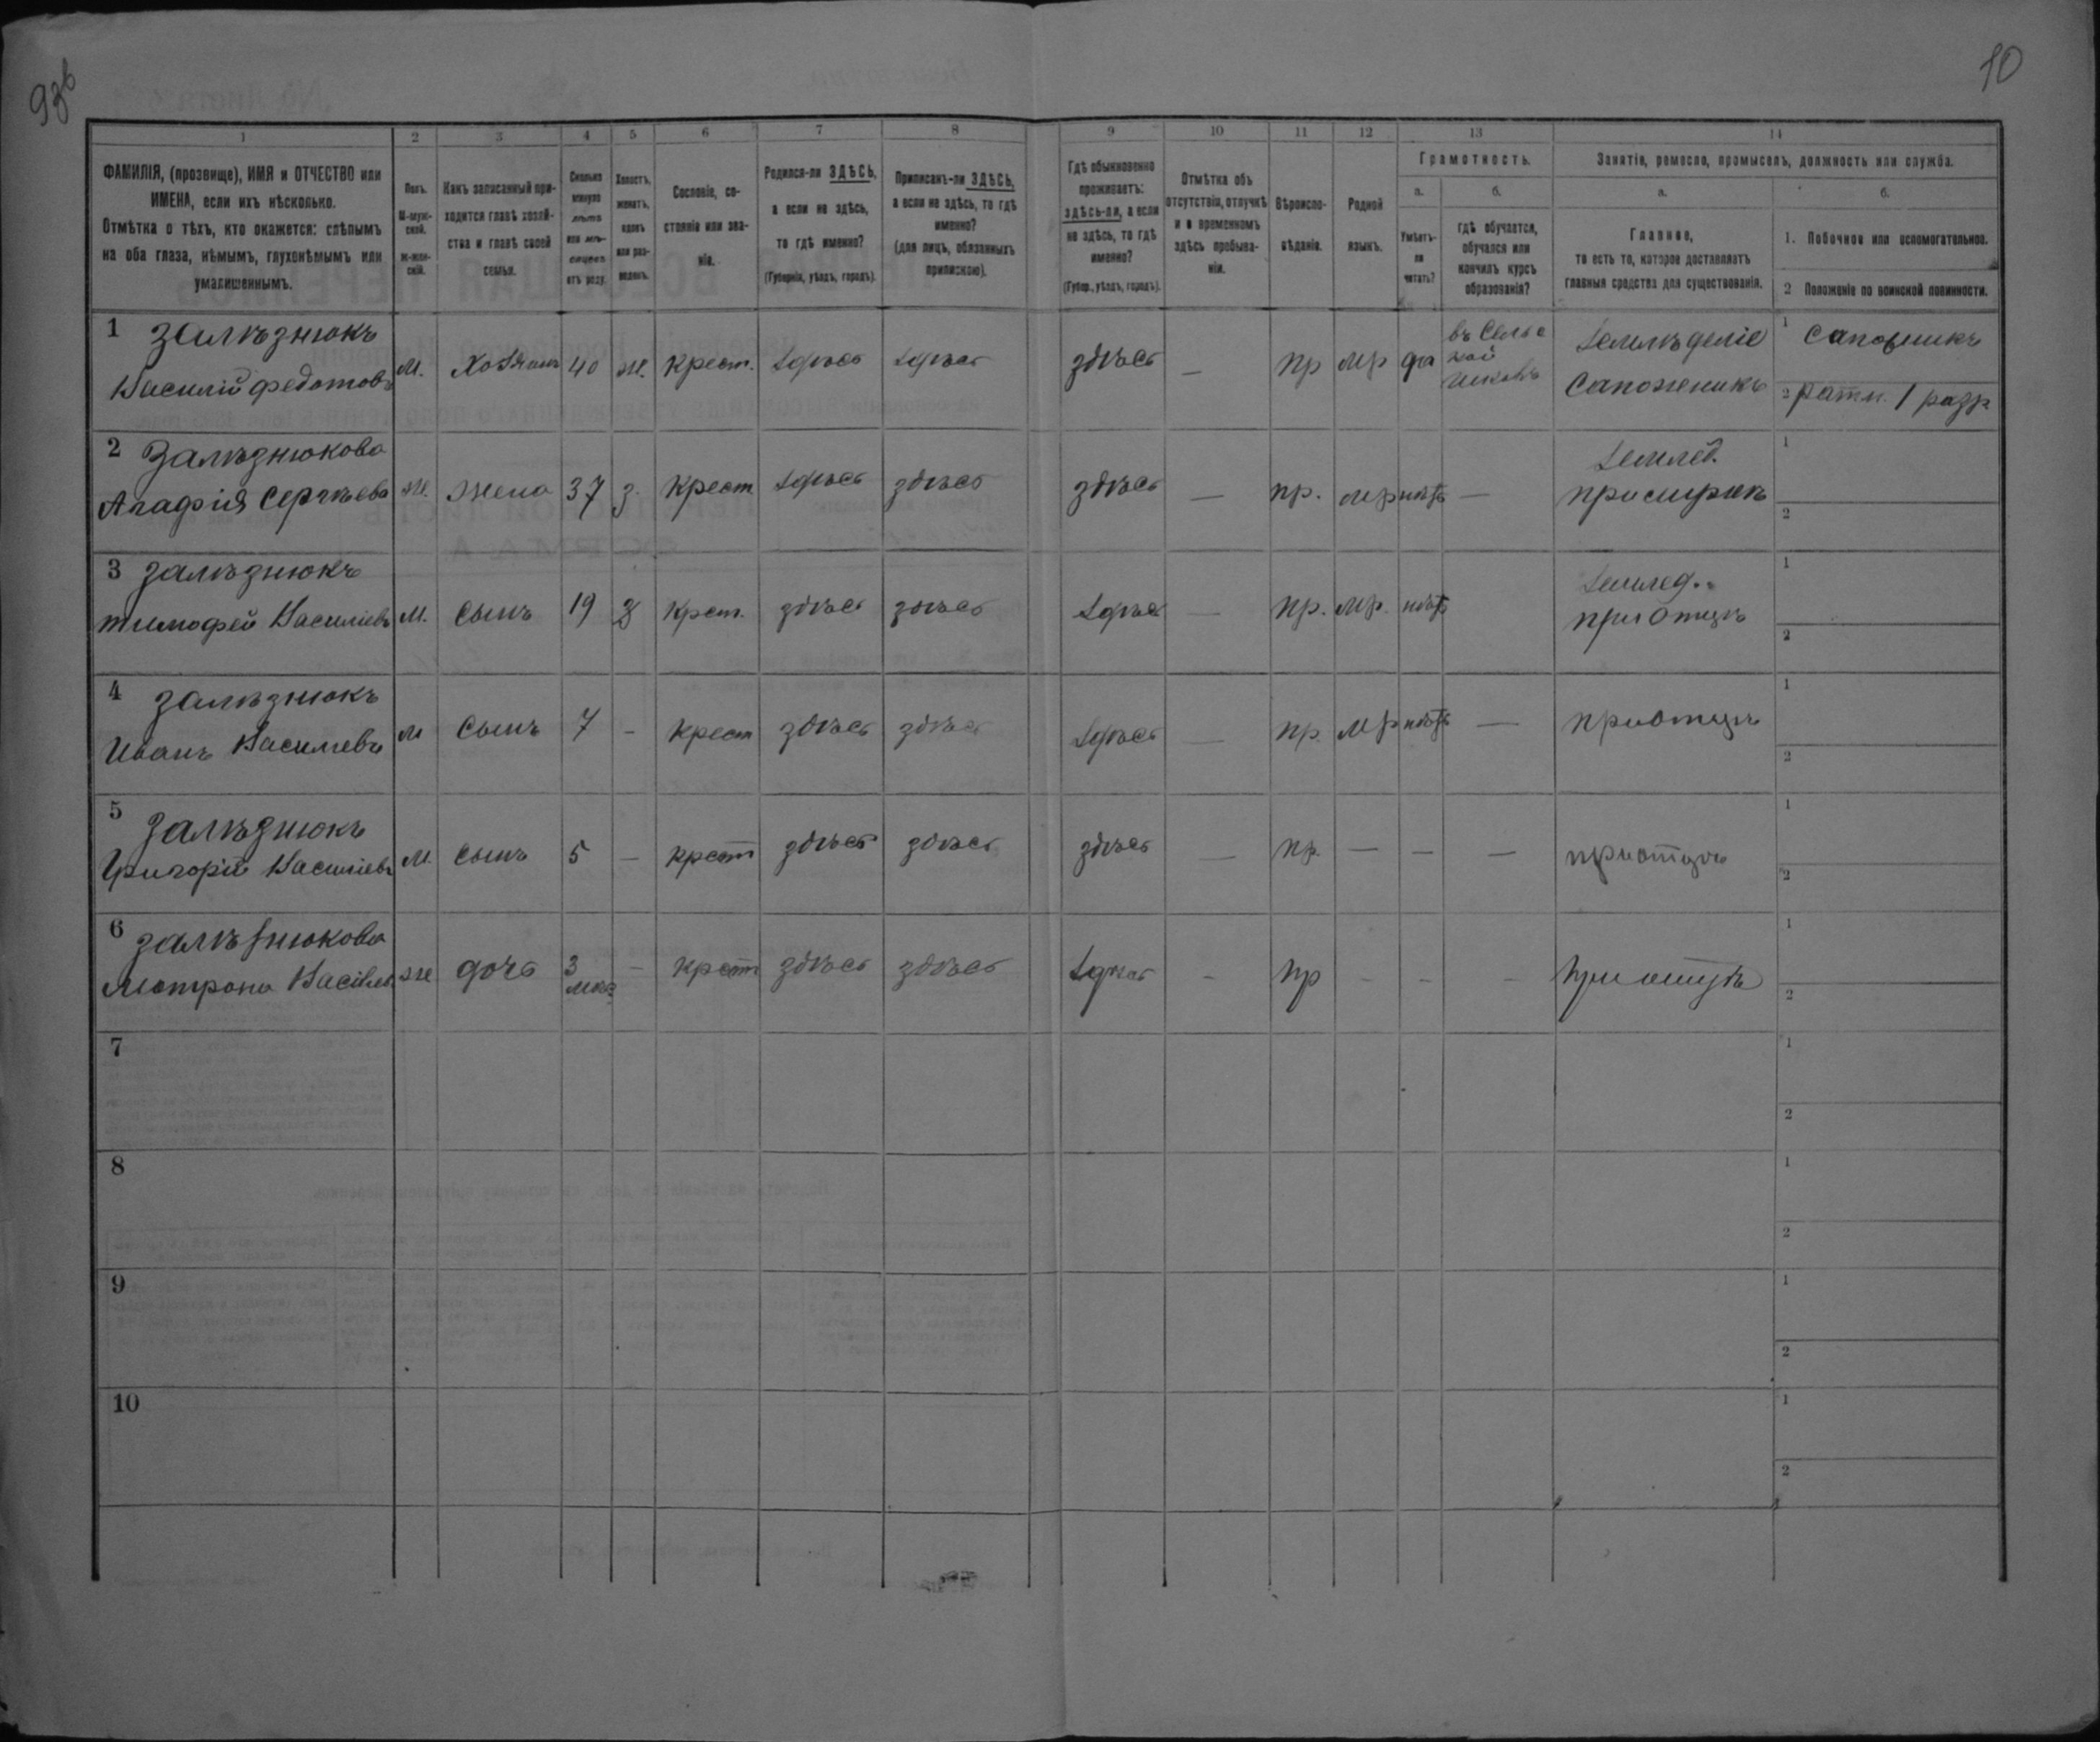 9об
10
1 2 3 4 5 6 7 8 9 10 11 12 13 14
ФАМИЛІЯ, (прозвище), ИМЯ и ОТЧЕСТВО или
ИМЕНА, если ихъ нѣсколько.
Отмѣтка о тѣхъ, кто окажется: слѣпымъ
на оба глаза, нѣмымъ, глухонѣмымъ или
умалишеннымъ.
Полъ.
М-муж-
ской.
Ж-жен-
скій.
Какъ записанный при-
ходится главѣ хозяй-
ства и главѣ своей
семьи.
Сколько
минуло
лѣтъ
или мѣ-
сяцевъ
отъ роду.
Холостъ,
женатъ,
вдовъ
или раз-
веденъ.
Сословіе, со-
стояніе или зва-
ніе.
Родился-ли ЗДѢСЬ,
а если не здѣсь,
то гдѣ именно?
(Губернія, уѣздъ, городъ).
Приписанъ-ли ЗДѢСЬ,
а если не здѣсь, то гдѣ
именно?
(для лицъ, обязанныхъ
припискою).
Гдѣ обыкновенно
проживаетъ:
здѣсь-ли, а если
не здѣсь, то гдѣ
именно?
(Губер., уѣздъ, городъ).
Отмѣтка объ
отсутствіи, отлучкѣ
и о временномъ
здѣсь пребыва-
ніи.
Вѣроиспо-
вѣданіе.
Родной
языкъ.
Грамотность.
а.
Умѣетъ-
ли
читать?
б.
гдѣ обучается,
обучался или
кончилъ курсъ
образованія?
Занятіе, ремесло, промыселъ, должность или служба.
а.
Главное,
то есть то, которое доставляетъ
главныя средства для существованія.
б.
1. Побочное или вспомогательное.
2 Положеніе по воинской повинности.
1 Залѣзнюкъ
Василій Федотовъ М. Хозяинъ 40 ж. Крест. Здѣсь Здѣсь здѣсь — пр мр да
въ Сельс
кой
школѣ
Земледѣліе
Сапожникъ
1 Сапожникъ
2 ратн. 1 разр
2 Залѣзнюкова
Агафія Сергѣева Ж. жена 37 з. Крест Здѣсь здѣсь здѣсь — пр. мр нѣтъ —
Землед.
при мужѣ
1
2
3 Залѣзнюкъ
Тимофей Василіевъ М. Сынъ 19 Крест. здѣсь здѣсь Здѣсь — пр. мр. нѣтъ
Землед.
при Отцѣ
1
2
4 Залѣзнюкъ
Иванъ Василіевъ М Сынъ 7 - крест здѣсь здѣсь Здѣсь — пр. мр нѣтъ — при отцѣ
1
2
5 Залѣзнюкъ
Григорій Василіевъ М Сынъ 5 — крест здѣсь здѣсь здѣсь — пр. — — — при отцѣ
1
2
6 Залѣзнюкова
Мотрона Васільев. Ж дочь 3 — Крест здѣсь здѣсь Здѣсь - пр - - - при отцѣ
мес
1
2
7
1
2
8
1
2
9
1
2
10
1
2